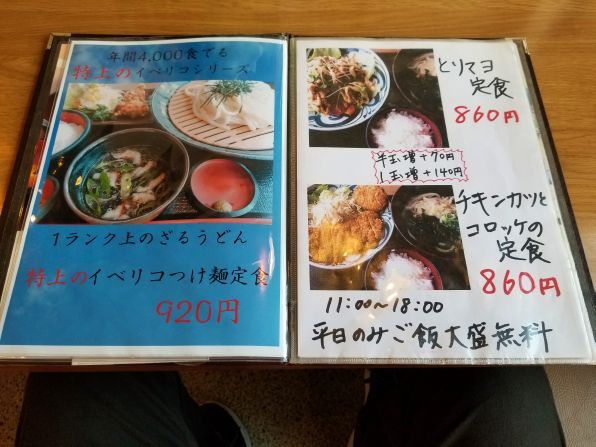 年間4,000食でる
特上のイベリコシリーズ
1ランク上のざるうどん
特上のイベリコつけ麺定食
920円
とりマヨ
定食
860円
半玉増+70円
1玉増+140円
チキンカツと
コロッケの
定食
860円
11:00~18:00
平日のみご飯大盛無料